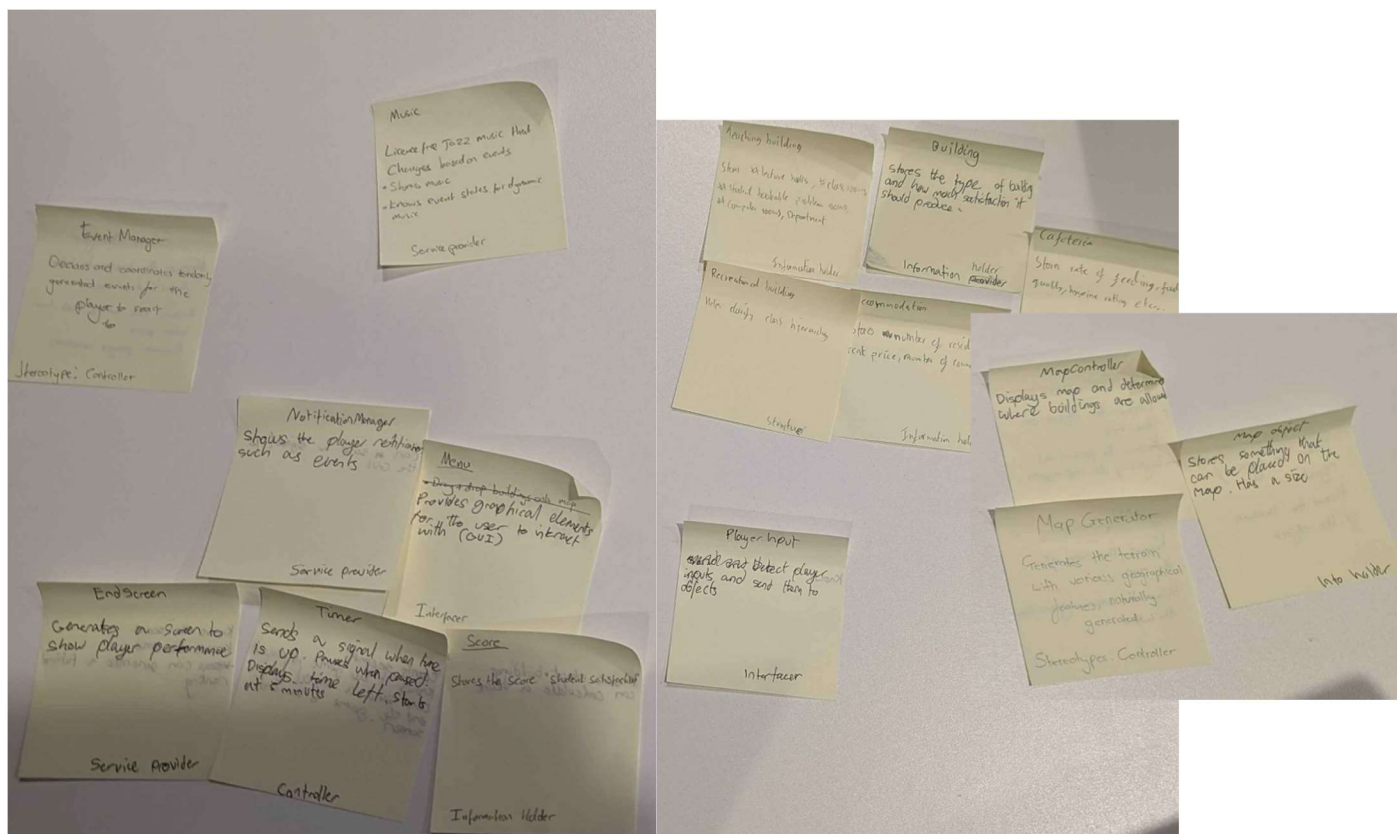 Music
Licence free Jazz music that
Changes based on events
• Stores music
• Knows event states for dynamic
music
Service provider
Event Manager
Decides and coordinates randomly
generated events for the
player to react
to
Stereotype: Controller
NotificationManager
Shows the player
such as events
Service provider
Menu
• Drag + drop buildings onto map
Provides graphical elements
for the user to interact
with (GUI)
Interfacer
EndScreen
Generates a screen to
show player performance
Service Provider
Timer
Sends a signal when time
is up. Paused when paused.
Displays time left, starts
at 5 minutes
Controller
Score
Stores the score "student satisfaction"
Information Holder
Teaching building
Store lecture halls,
Computer rooms, Department
Information holder
Building
Stores the type of building
and how much satisfaction it
should produce.
Information holder provider
Cafeteria
Store rate of feeding, food
quality, hygiene rating etc..
Recreational building
Help clarify class hierarchy
Structup
ccommodation
number of resid
rent price, number of
Information hol
MapController
Displays map and determine
where buildings are allowed
Map object
Stores something that
can be placed on the
map. Has a size
Info holder
Map Generator
Generates the terrain
with various geographical
features, naturally
generated
Stereotypes: Controller
Player Input
detect player
inputs and send them to
objects
Interfacer